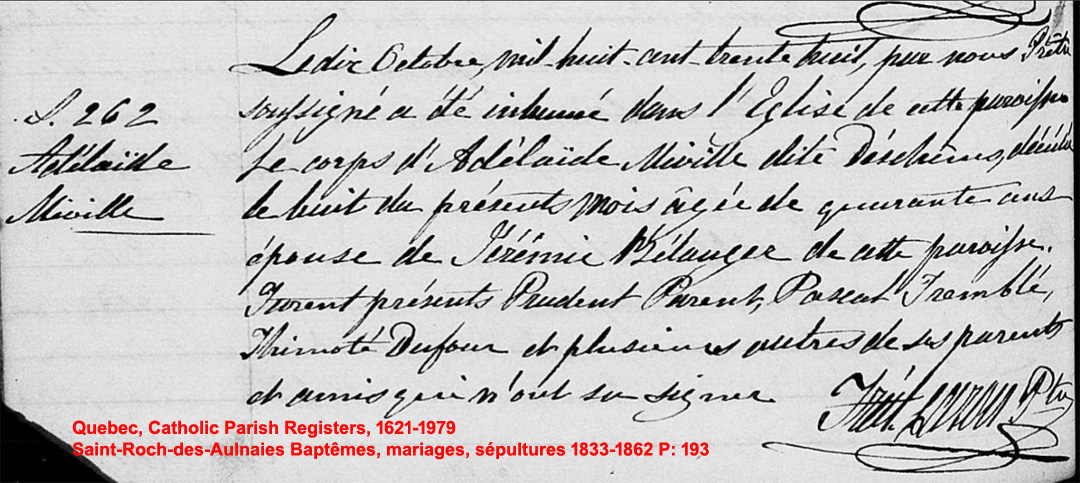 S. 262
Adélaïde
Miville
Le dix Octobre, mil-huit-cent-trente huit, par nous Prêtre
soussigné a été inhumé dans l'Eglise de cette paroisse
le corps d'Adélaïde Miville dite Deschênes, décédée
le huit du présents mois âgée de quarante ans
épouse de Jérémie Bélanger de cette paroisse.
Furent présents Prudent Parent, Pascal Tremblé,
Thimoté Dufour et plusieurs autres de ses parents
et amis qui n'ont su signer
Ptre
Quebec, Catholic Parish Registers, 1621-1979
Saint-Roch-des-Aulnaies Baptêmes, mariages, sépultures 1833-1862 P: 193